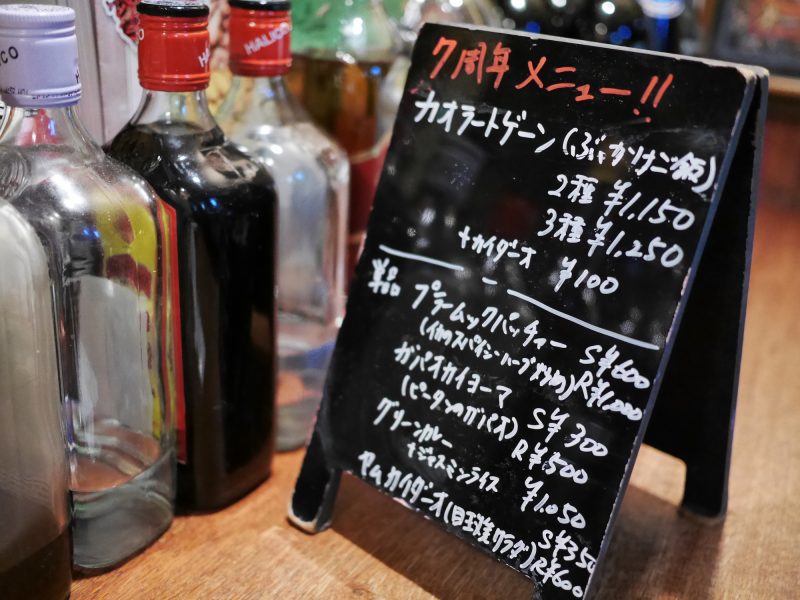 7周年メニュー!!
カオラートゲーン(ぶっかけご飯)
2種 ¥1.150
3種 ¥1.250
+カイダーオ ¥100
単品
プラームックパッチャー S¥600
(イカのスパイシーハーブ炒め) R¥1,000
ガパオカイヨーマ S¥300
(ピータンのガパオ) R¥500
グリーンカレー
+ジャスミンライス ¥1.050
ヤムカイダーオ(目玉焼サラダ) S¥350
R¥600
HALICO